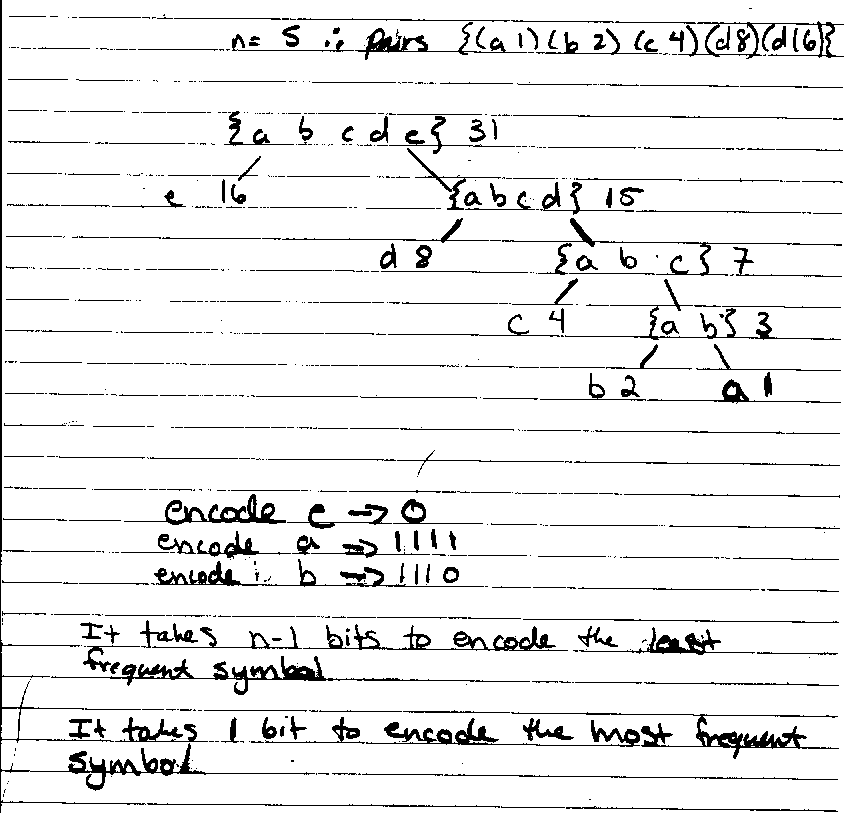 n= 5 ∴ pairs {(a 1) (b 2) (c 4) (d 8) (d 16)}
{a b c d e} 31
e 16 {a b c d} 15
d 8 {a b c} 7
c 4 {a b} 3
b 2 a 1
encode e -> 0
encode a => 1111
encode b => 1110
It takes n-1 bits to encode the least
frequent symbol
It takes 1 bit to encode the most frequent
symbol